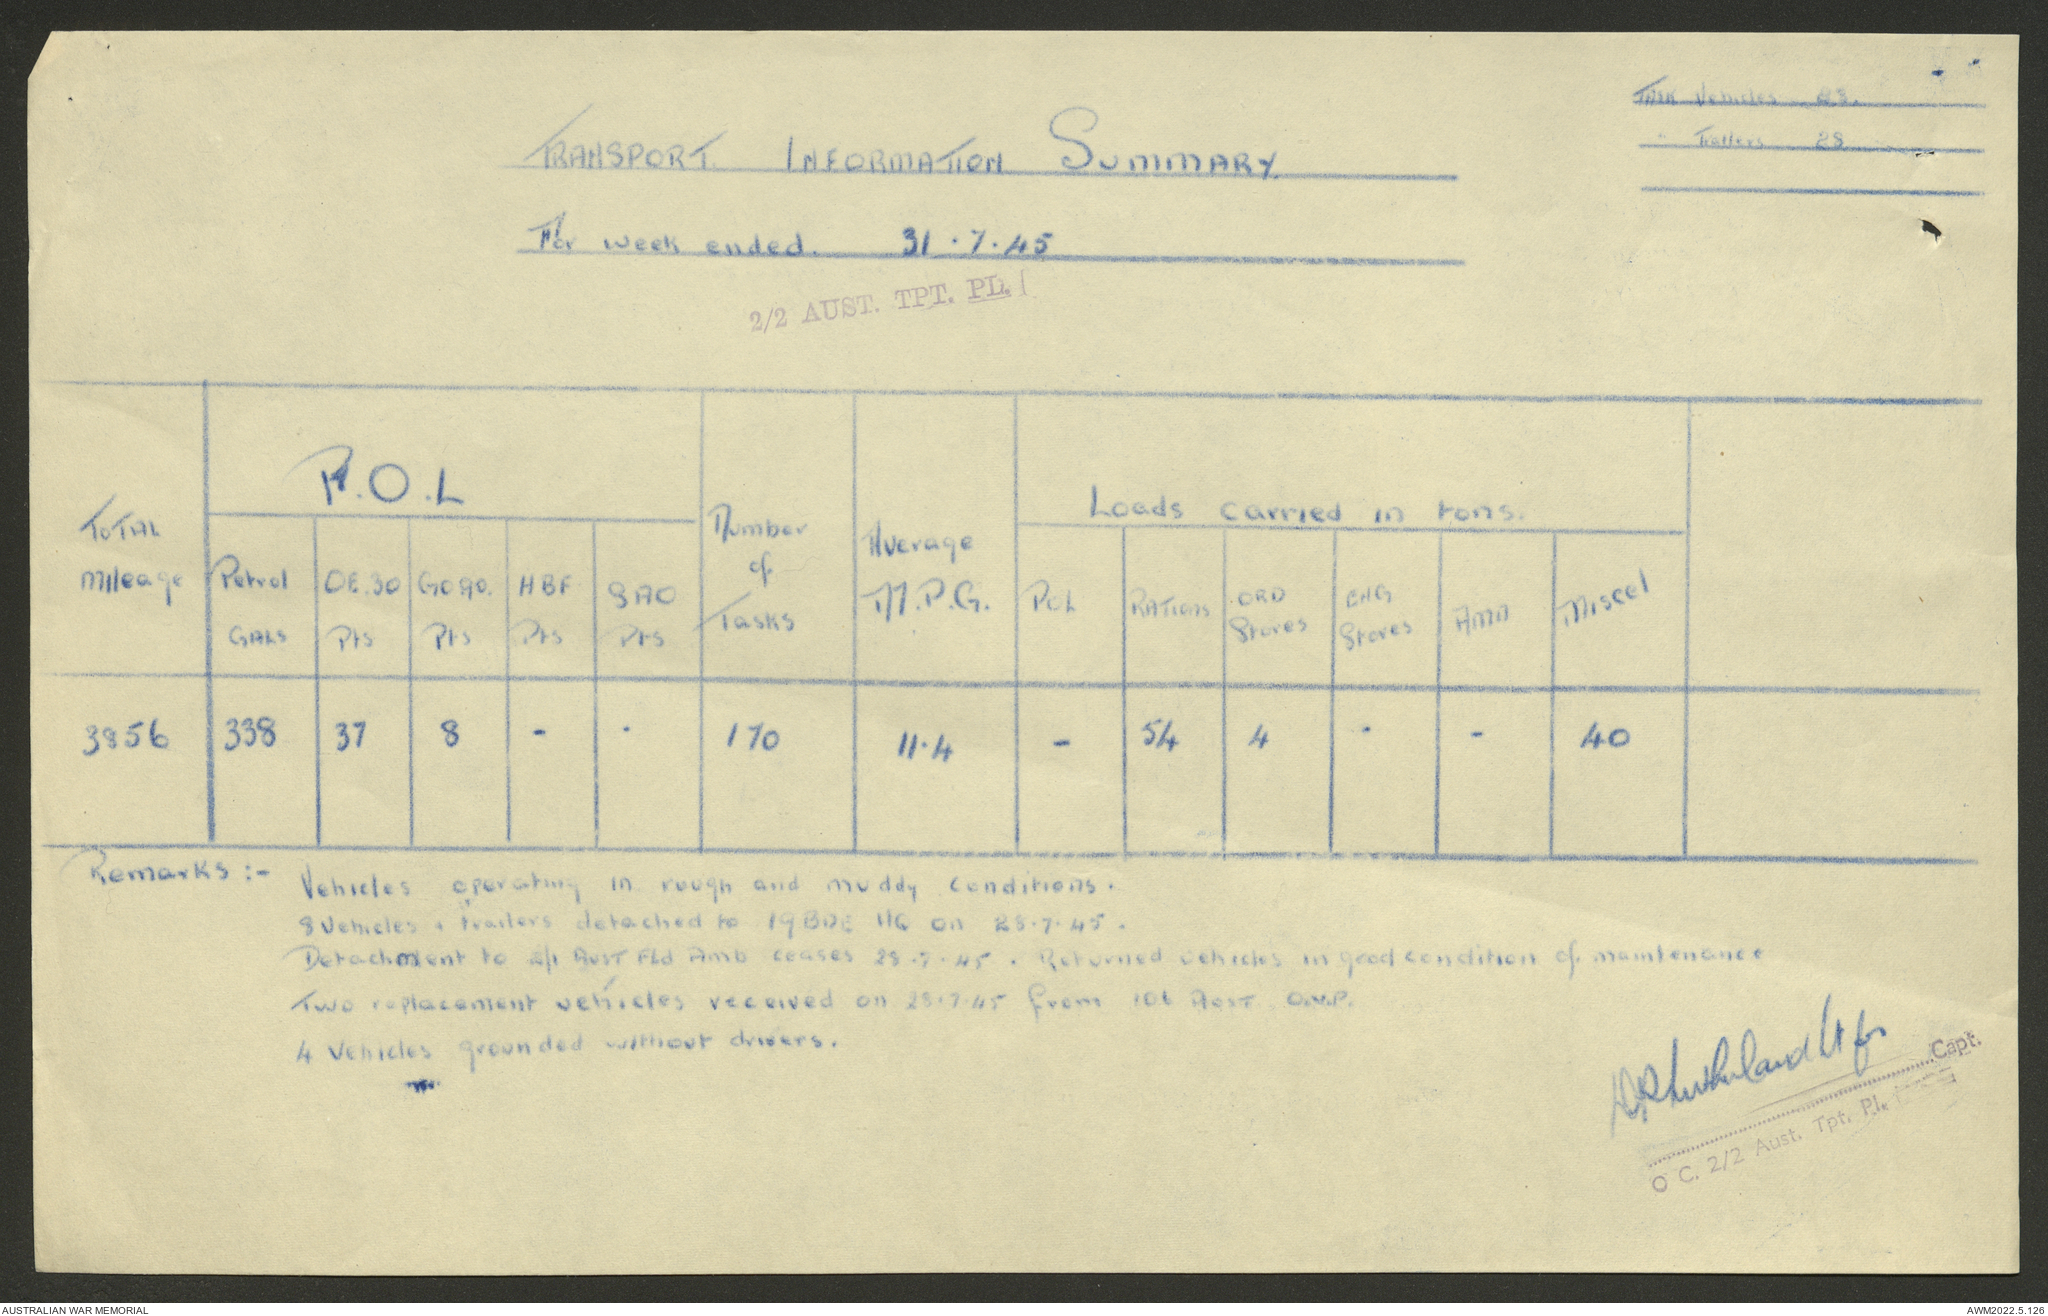 Task Vehicles 28.
" Trailers 28
TRANSPORT INFORMATION SUMMARY.
For week ended. 31.7.45
2/2 AUST. TPT. PL.
P.O.L
Loads carried in tons.
TOTAL mileage
Petrol GALS
OE.30 Pts
GO90. Pts
HBF Pts
SAO Pts
Number of Tasks
Average M.P.G.
POL
RATIONS
ORD Stores
ENG Stores
Amn
Miscel
3856 338 37 8 - . 170 11.4 - 54 4 - - 40
Remarks :- Vehicles operating in rough and muddy conditions.
8 Vehicles + trailers detached to 19 BDE HQ on 28.7.45.
Detachment to 2/1 Aust Fld Amb ceases 28.7.45. Returned vehicles in good condition of maintenance
Two replacement vehicles received on 28.7.45 from 106 Aust O.V.P.
4 Vehicles grounded without drivers.
Sutherland Lt for
Capt.
O C. 2/2 Aust. Tpt. Pl.
AUSTRALIAN WAR MEMORIAL
AWM2022.5.126